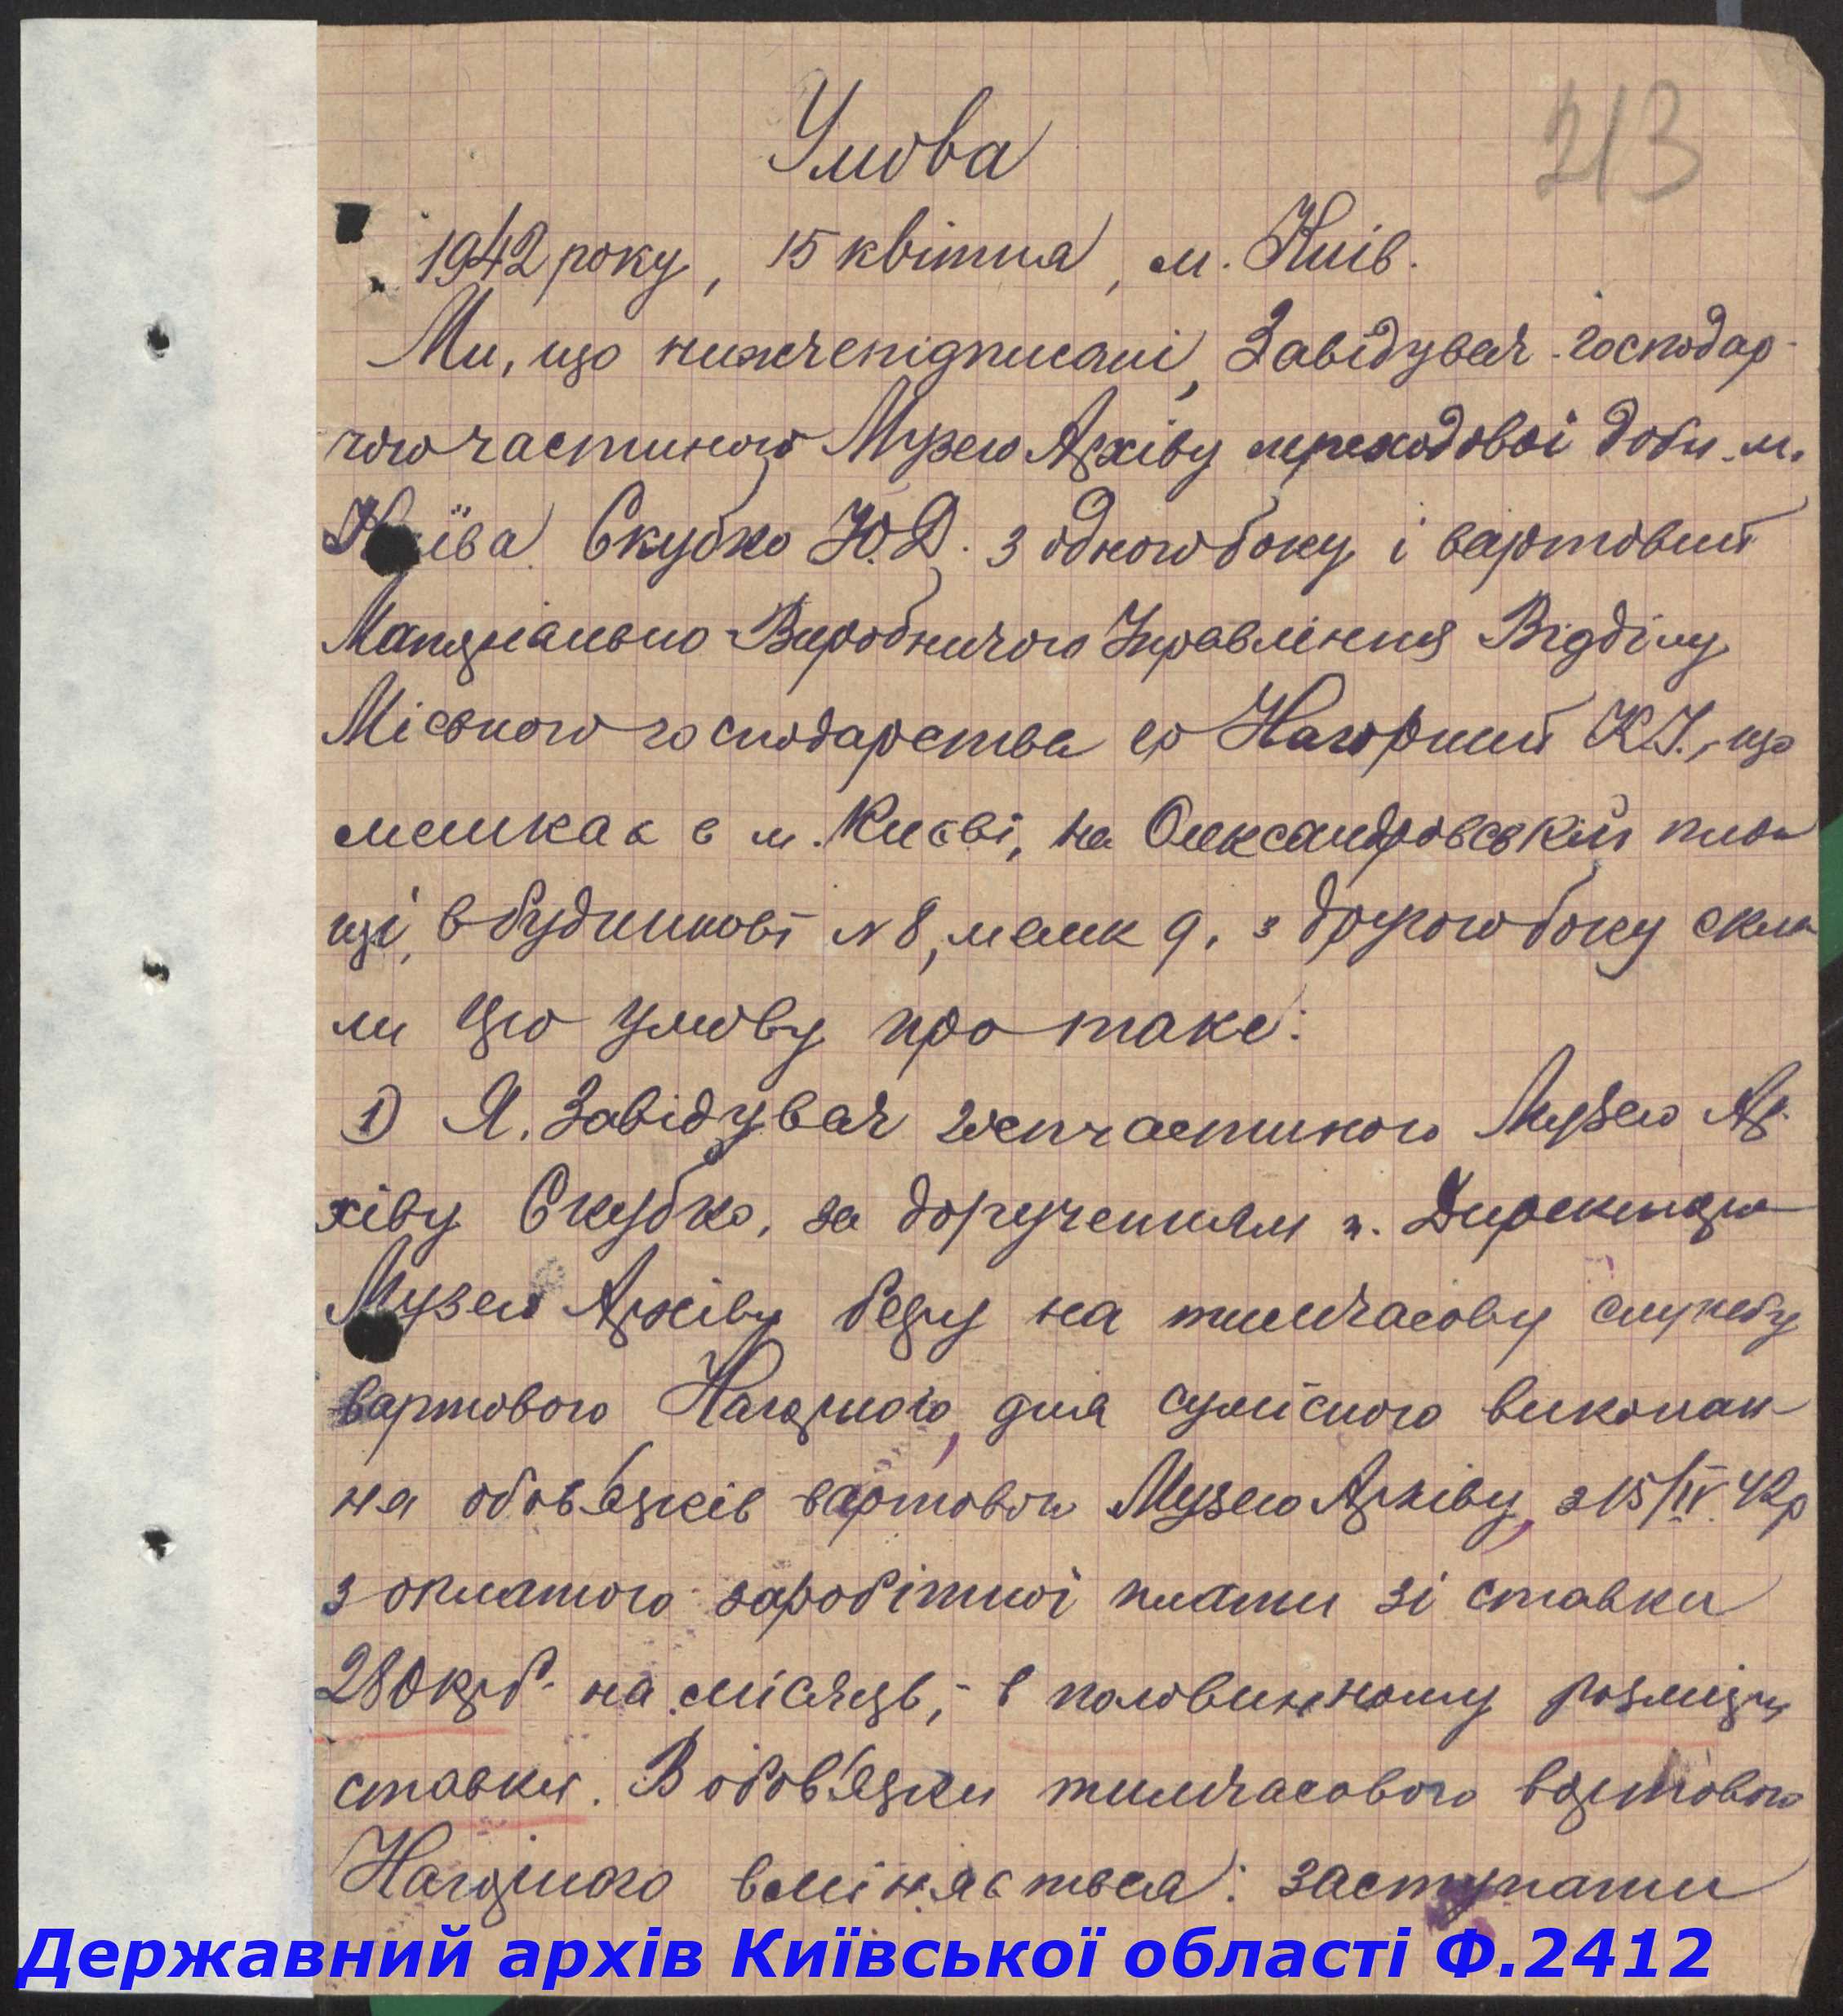 213
Умова
1942 року, 15 квітня, м. Київ.
Ми, що нижчепідписані, Завідувач господар-
чою частиною Музею Архіву переходової доби м.
Київа Скубко Ю.Д. з одного боку і вартовий
Матеріально-Виробничого Управління Відділу
Міського господарства Нагорний К.І., що
мешкає в м. Києві, на Олександровській пло-
щі, в будинкові №8, мешк 9, з другого боку скла-
ли цю умову про таке:
1) Я, Завідувач госпчастиною Музею Ар-
хіву Скубко, за дорученням п. Директора
Музею Архіву беру на тимчасову службу
вартового Нагорного, для сумісного виконан-
ня обов'язків вартового Музею Архіву, з 15/IV 42р
з оплатою заробітної плати зі ставки
280 крб. на місяць, - в половинному розмірі
ставки. В обов'язки тимчасового вартового
Нагорного вміняється: заступати
Державний архів Київської області Ф.2412